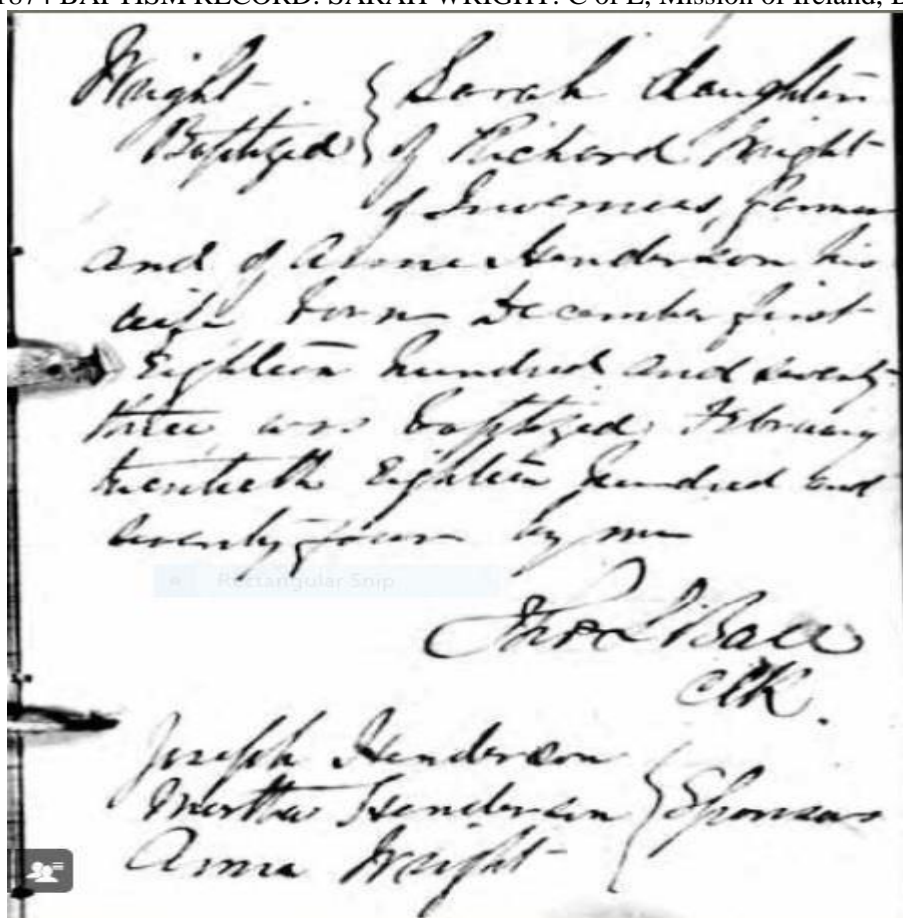 1874 BAPTISM RECORD: SARAH WRIGHT: C of E, Mission of Ireland,
Wright { Sarah daughter
Baptized { of Richard Wright
of Inverness, farmer
and of Anne Henderson his
wife born December first
Eighteen hundred and seventy
three was baptized February
twentieth Eighteen hundred and
seventy four by me
Rectangular Snip
Thos L Ball
Clk.
Joseph Henderson
Martha Henderson } Sponsors
Anna Wright